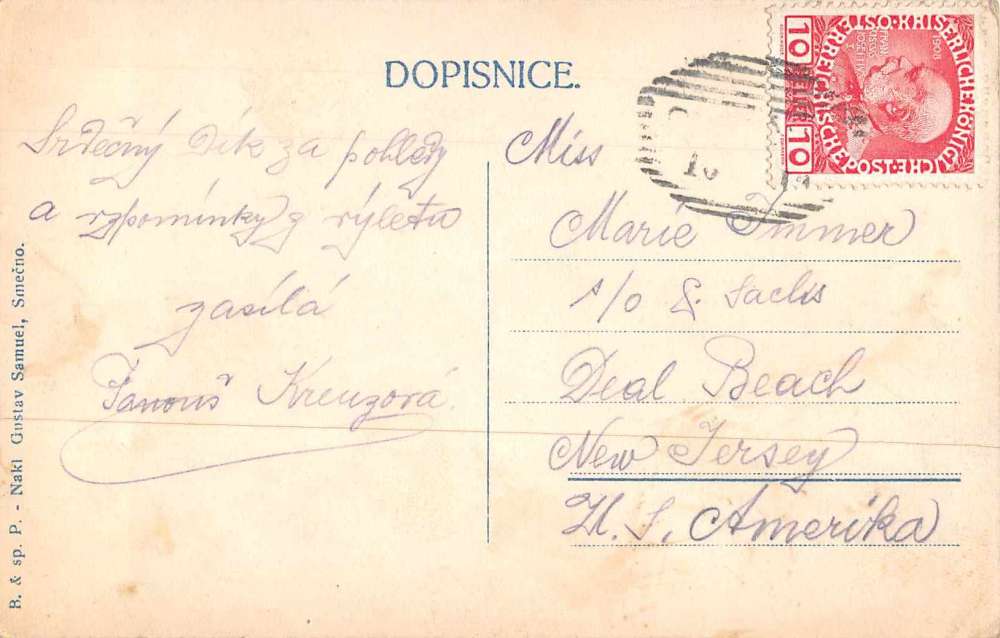 DOPISNICE.
Srdečný Dík za pohledy
a vzpomínky z výletu
zasílá
Kreuzová.
Miss
Marie Immer
c/o S. Sachs
Deal Beach
New Jersey
U. S. Amerika
B. & sp. P. - Nakl Gustav Samuel, Smečno.
KAISERLICHEKÖNIGLICHE
ÖSTERREICHISCHE POST
1908
10 10
10